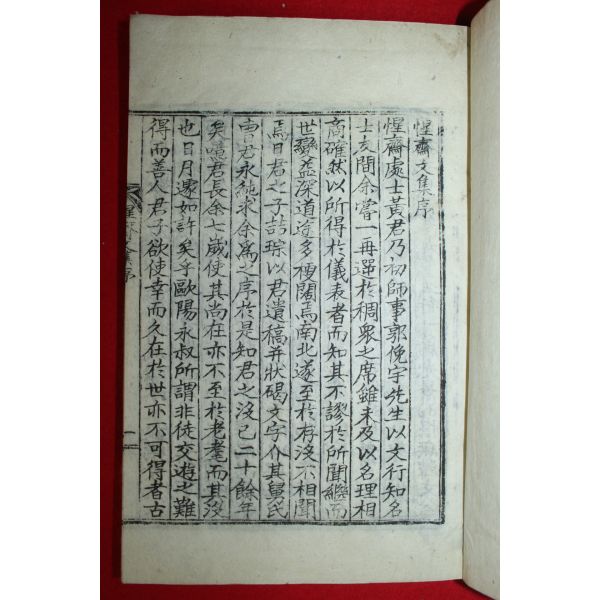 惺齋文集序
惺齋處士黃君乃初師事郭俛宇先生以文行知名
士友間余嘗一再選於稠衆之席雖未及以名理相
商確然以所得於儀表者而知其不謬於所聞繼而
世變益深道途多梗闊焉南北遂至於存沒不相聞
焉日君之子喆琮以君遺稿幷狀碣文字介其舅氏
君永純求余爲之序於是知君之沒已二十餘年
矣噫君長余七歲使其尚在亦不至於老耄而其沒
也日月遽如許矣乎歐陽永叔所謂非徒交遊之難
得而善人君子欲使幸而久在於世亦不可得者古
惺齋文集序
一